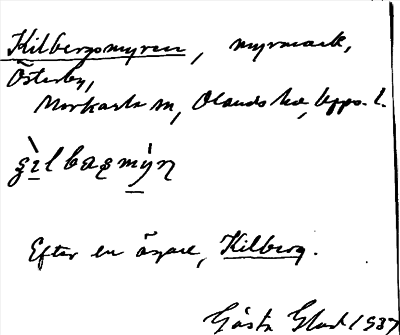 Kilbergsmyren, myrmark,
Österby,
Morkarla sn, Olands hd, Upps. l.
Efter en ägare, Kilberg.
Gösta Glad 1937